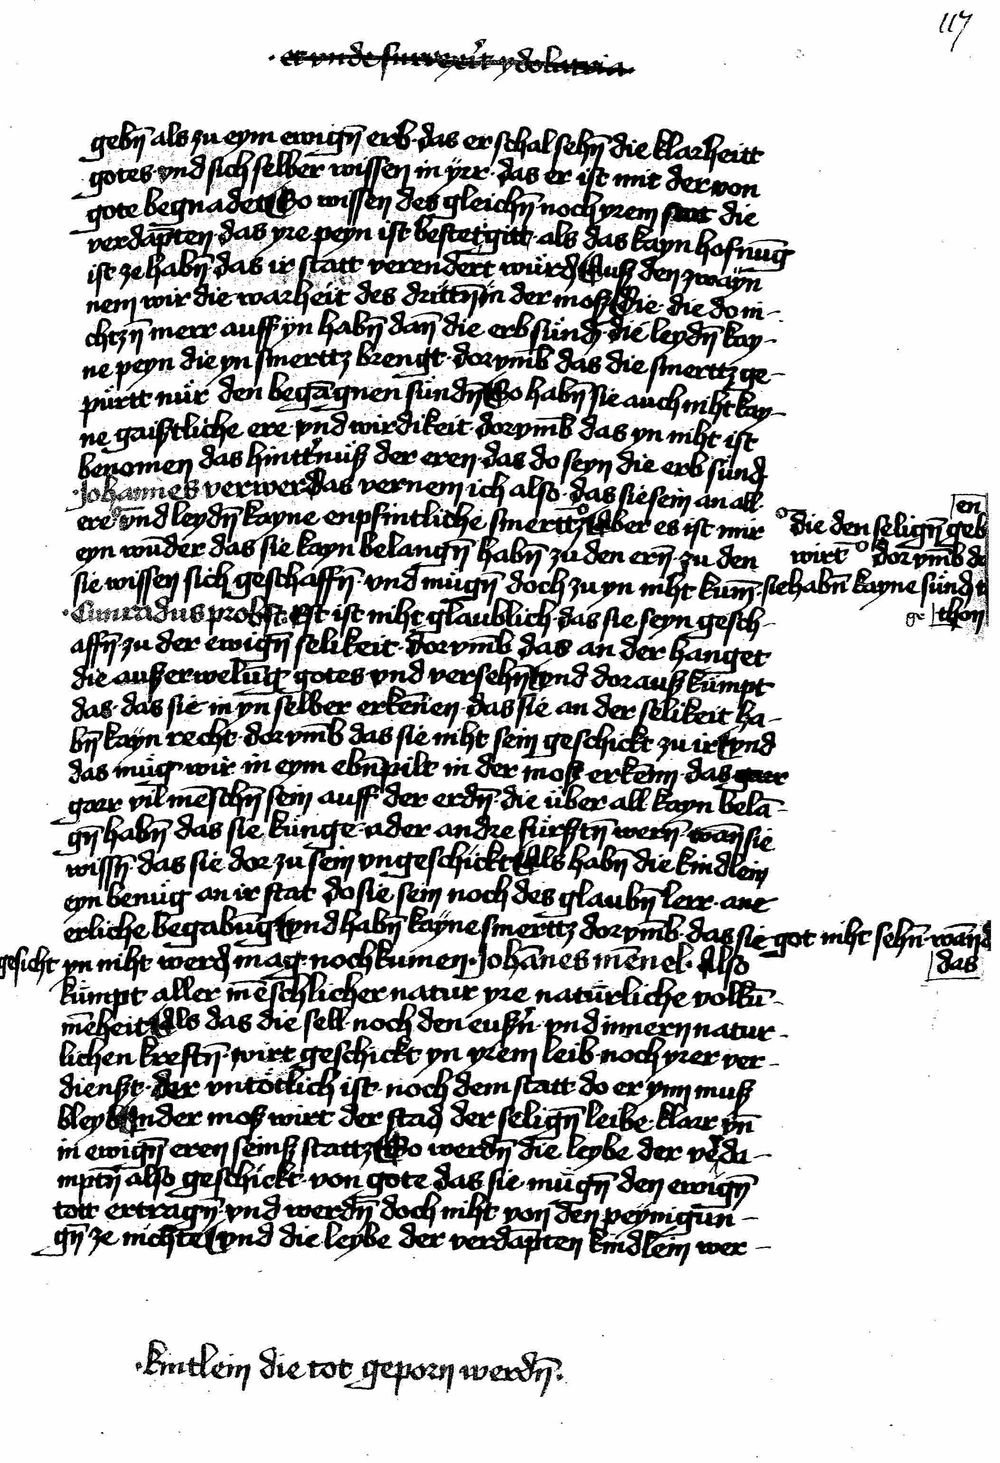 117
et vnde surrexit ydolatria
gebn̄ als zu eym ewign̄ erb · das er schal sehn̄ die klarheitt
gotes · vnd sich selber wissen in yrr · das er ist mit der von
gote begnadet So wissen des gleichn̄ noch yrem statt die
verdāpten · das yre peyn ist bestetgitt · als das kayn hofnūg
ist ze habn̄ · das ir statt verendert würd Auß den zwayn̄
nem wir die warheit des drittn̄ in der moß Die · die do in-
chtzn̄ merr auff yn habn̄ dan̄ die erbsünd · die leydn̄ kay-
ne peyn die yn smerttz brengt · dorvmb das die smerttz ge-
pürtt nür den begāgnen sündn̄ So habn̄ sie auch niht kay-
ne gaistliche ere · vnd wirdikeit · dorvmb das yn niht ist
benomen das hinttn̄uß der eren · das do seyn die erbsünd
· Johannes verwer · das vernem ich also · das sie sein an all
ere vnd leydn̄ kayne enpfintliche smerttz Aber es ist mir
eyn wūder das sie kayn belangn̄ habn̄ zu den ern̄ · zu den
sie wissen sich geschaffn̄ · vnd mügn̄ doch zu yn niht kum̄ ·
en
die den selign̄ geb
wirt dorvmb d
sie habn̄ kayne sünd
ge thon
· Cunradus probst Est ist niht glaublich · das sie seyn gesch-
affn̄ zu der ewign̄ selikeit · dorvmb das an der hanget
die außerwelūg gotes · vnd versehn̄ vnd dorauß kümpt
das · das sie in yn selber erkēnen · das sie an der selikeit ha-
bn̄ kayn recht · dorvmb das sie niht sein geschickt zu ir vnd
das müg wir in eym ebn̄pilt in der moß erkēnn · das garr
garr vil mēschn̄ sein auff der erdn̄ · die über all kayn belā-
gn̄ habn̄ das sie künge · ader andre fürstn̄ wern̄ · wan̄ sie
wissn̄ · das sie dorzu sein vngeschickt Als habn̄ die kindlein
eyn benüg an ir stat do sie sein noch des glaubn̄ lerr · ane
erliche begabūg vnd habn̄ kayne smerttz dorvmb · das sie got niht sehn̄ · wan̄ d
das
gesicht yn niht werd mag · noch kumen · Johānes mēnel · Also
kümpt aller mēschlicher natur yre natürliche volkū-
mēheit Als das die sell · noch den eußn̄ · vnd innern natur-
lichen kreftn̄ · wirt geschickt yn yrem leib · noch yrer ver-
dienst · der vntötlich ist · noch dem statt do er ynn muß
bleyb In der moß wirt der stad der selign̄ leibe · klarr yn̄
in ewign̄ eren seinß stattz So werdn̄ die leybe der v'da-
mptn̄ also geschickt von gote das sie mügn̄ den ewign̄
tott ertragn̄ · vnd werdn̄ doch niht von den peynigūn-
gn̄ ze nichte vnd die leybe der verdāpten kindlein wer-
· kintlein die tot geporn werdn̄ ·